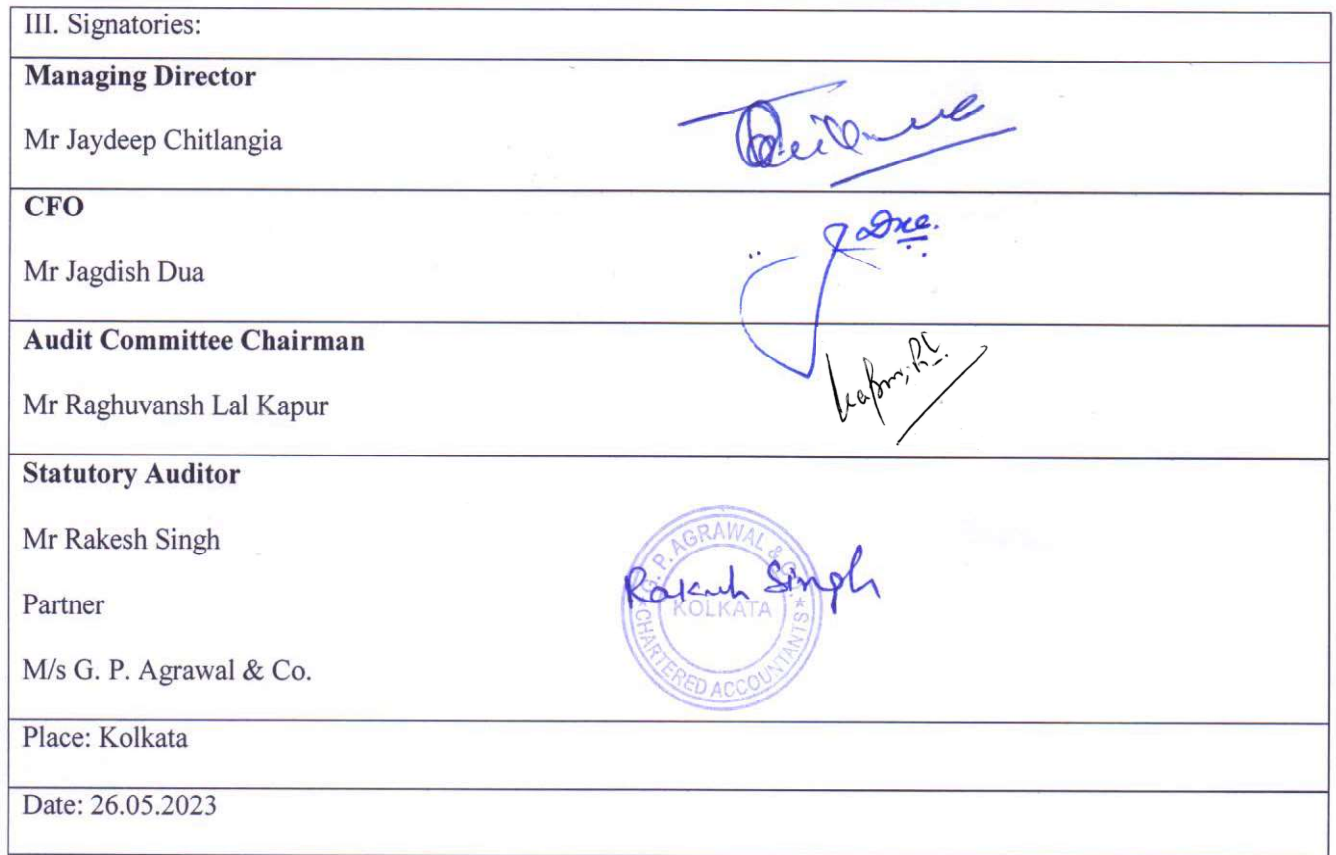 III. Signatories:
Managing Director
Mr Jaydeep Chitlangia
CFO
Mr Jagdish Dua
Audit Committee Chairman
Mr Raghuvansh Lal Kapur
Kapur, RL.
Statutory Auditor
Mr Rakesh Singh
Partner
M/s G. P. Agrawal & Co.
G. P. AGRAWAL & CO.
Rakesh Singh
KOLKATA
* CHARTERED ACCOUNTANTS *
Place: Kolkata
Date: 26.05.2023